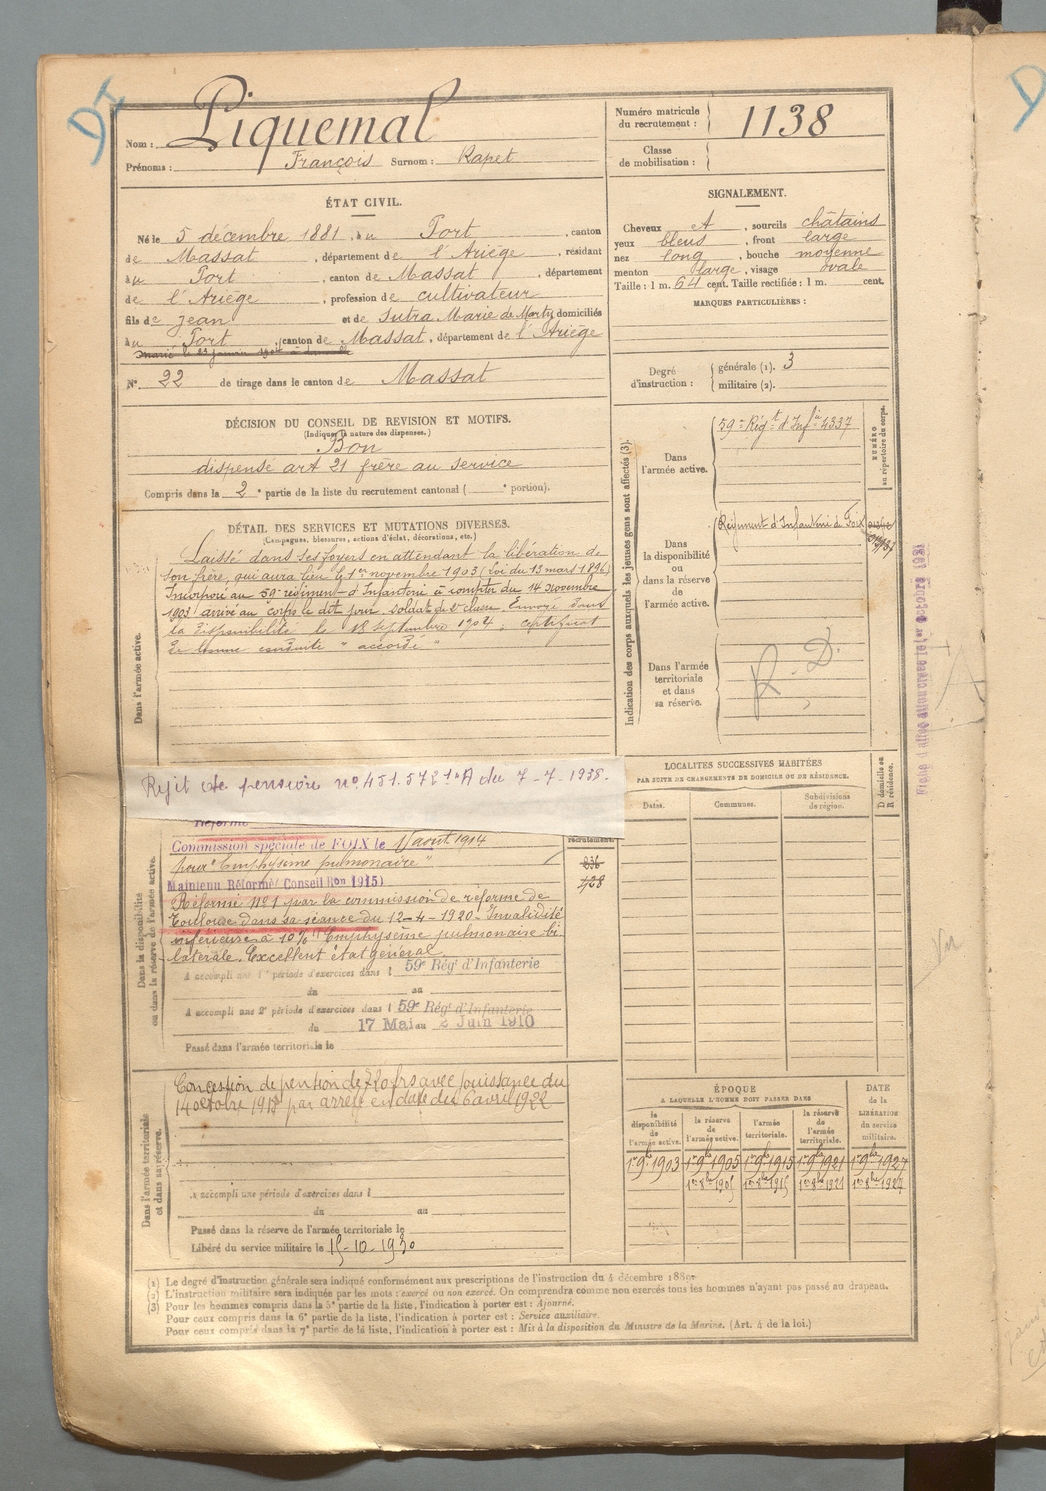 DI
Nom : Piquemal
Prénoms : François Surnom : Rapet
Numéro matricule du recrutement : 1138
Classe de mobilisation :
ÉTAT CIVIL.
Né le 5 décembre 1881, à u Port, canton
de Massat, département de l'Ariège, résidant
à u Port, canton de Massat, département
de l'Ariège, profession de cultivateur
fils de Jean et de Sutra Marie de Morty domiciliés
à u Port, canton de Massat, département de l'Ariège
N° 22 de tirage dans le canton de Massat
SIGNALEMENT.
Cheveux , sourcils châtains
yeux bleus, front large
nez long, bouche moyenne
menton large, visage ovale
Taille : 1 m. 64 cent. Taille rectifiée : 1 m. cent.
MARQUES PARTICULIÈRES :
Degré d'instruction : générale (1). 3
militaire (2).
DÉCISION DU CONSEIL DE REVISION ET MOTIFS.
(Indiquer la nature des dispenses.)
Bon
dispensé art 21 frère au service
Compris dans la 2e partie de la liste du recrutement cantonal ( e portion).
DÉTAIL DES SERVICES ET MUTATIONS DIVERSES.
(Campagnes, blessures, actions d'éclat, décorations, etc.)
Dans l'armée active.
Laissé dans ses foyers en attendant la libération de
son frère, qui aura lieu le 1er novembre 1903 (Loi du 13 mars 1896)
Incorporé au 59e régiment d'Infanterie à compter du 14 novembre
1903, arrivé au corps le dit jour, soldat de 2e classe. Envoyé dans
la disponibilité le 18 septembre 1904, certificat
de bonne conduite "accordé"
Indication des corps auxquels les jeunes gens sont affectés (3).
NUMÉRO au répertoire du corps.
Dans l'armée active.
59e Régt d'Infie 4337
Dans la disponibilité ou dans la réserve de l'armée active.
Régiment d'Infanterie de Foix
Dans l'armée territoriale et dans sa réserve.
R. D.
Rejet de pension n° 451.572 A du 7-7-1938.
Réforme
recrutement.
Dans la disponibilité ou dans la réserve de l'armée active.
Commission spéciale de FOIX le août 1914
pour "Emphysème pulmonaire"
236
Maintenu Réformé (Conseil Ron 1915)
Réformé N° 1 par la commission de réforme de
Toulouse dans sa séance du 12-4-1920. Invalidité
inférieure à 10% "Emphysème pulmonaire bi-
latérale. Excellent état général.
A accompli une 1re période d'exercices dans l 59e Régt d'Infanterie
du au
A accompli une 2e période d'exercices dans l 59e Régt d'Infanterie
du 17 Mai au 2 Juin 1910
Passé dans l'armée territoriale le
LOCALITÉS SUCCESSIVES HABITÉES
PAR SUITE DE CHANGEMENTS DE DOMICILE OU DE RÉSIDENCE.
Dates. Communes. Subdivisions de région. D domicile ou R résidence.
Dans l'armée territoriale et dans sa réserve.
Concession de pention de 720 frs avec jouissance du
14 octobre par arrêté en date du 6 avril 1922
A accompli une période d'exercices dans l
du au
Passé dans la réserve de l'armée territoriale le
Libéré du service militaire le 15-10-1930
ÉPOQUE
A LAQUELLE L'HOMME DOIT PASSER DANS
DATE de la LIBÉRATION du service militaire.
la disponibilité de l'armée active. la réserve de l'armée active. l'armée territoriale. la réserve de l'armée territoriale.
1er 9bre 1903 1er 9bre 1905 1er 9bre 1915 1er 9bre 1921 1er 9bre 1927
(1) Le degré d'instruction générale sera indiqué conformément aux prescriptions de l'instruction du 4 décembre 1889.
(2) L'instruction militaire sera indiquée par les mots : exercé ou non exercé. On comprendra comme non exercés tous les hommes n'ayant pas passé au drapeau.
(3) Pour les hommes compris dans la 5e partie de la liste, l'indication à porter est : Ajourné.
Pour ceux compris dans la 6e partie de la liste, l'indication à porter est : Service auxiliaire.
Pour ceux compris dans la 7e partie de la liste, l'indication à porter est : Mis à la disposition du Ministre de la Marine. (Art. 4 de la loi.)
Vu